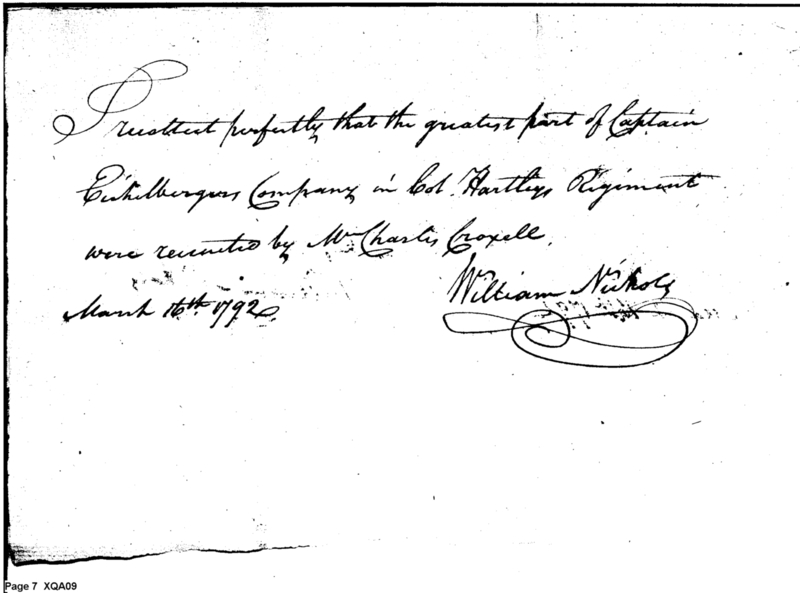 I recollect perfectly that the greatest part of Captain
Eichelbergers Company in Col. Hartleys Regiment
were recruited by Mr Charles Croxell.
William Nichols
March 16th 1792
Page 7 XQA09